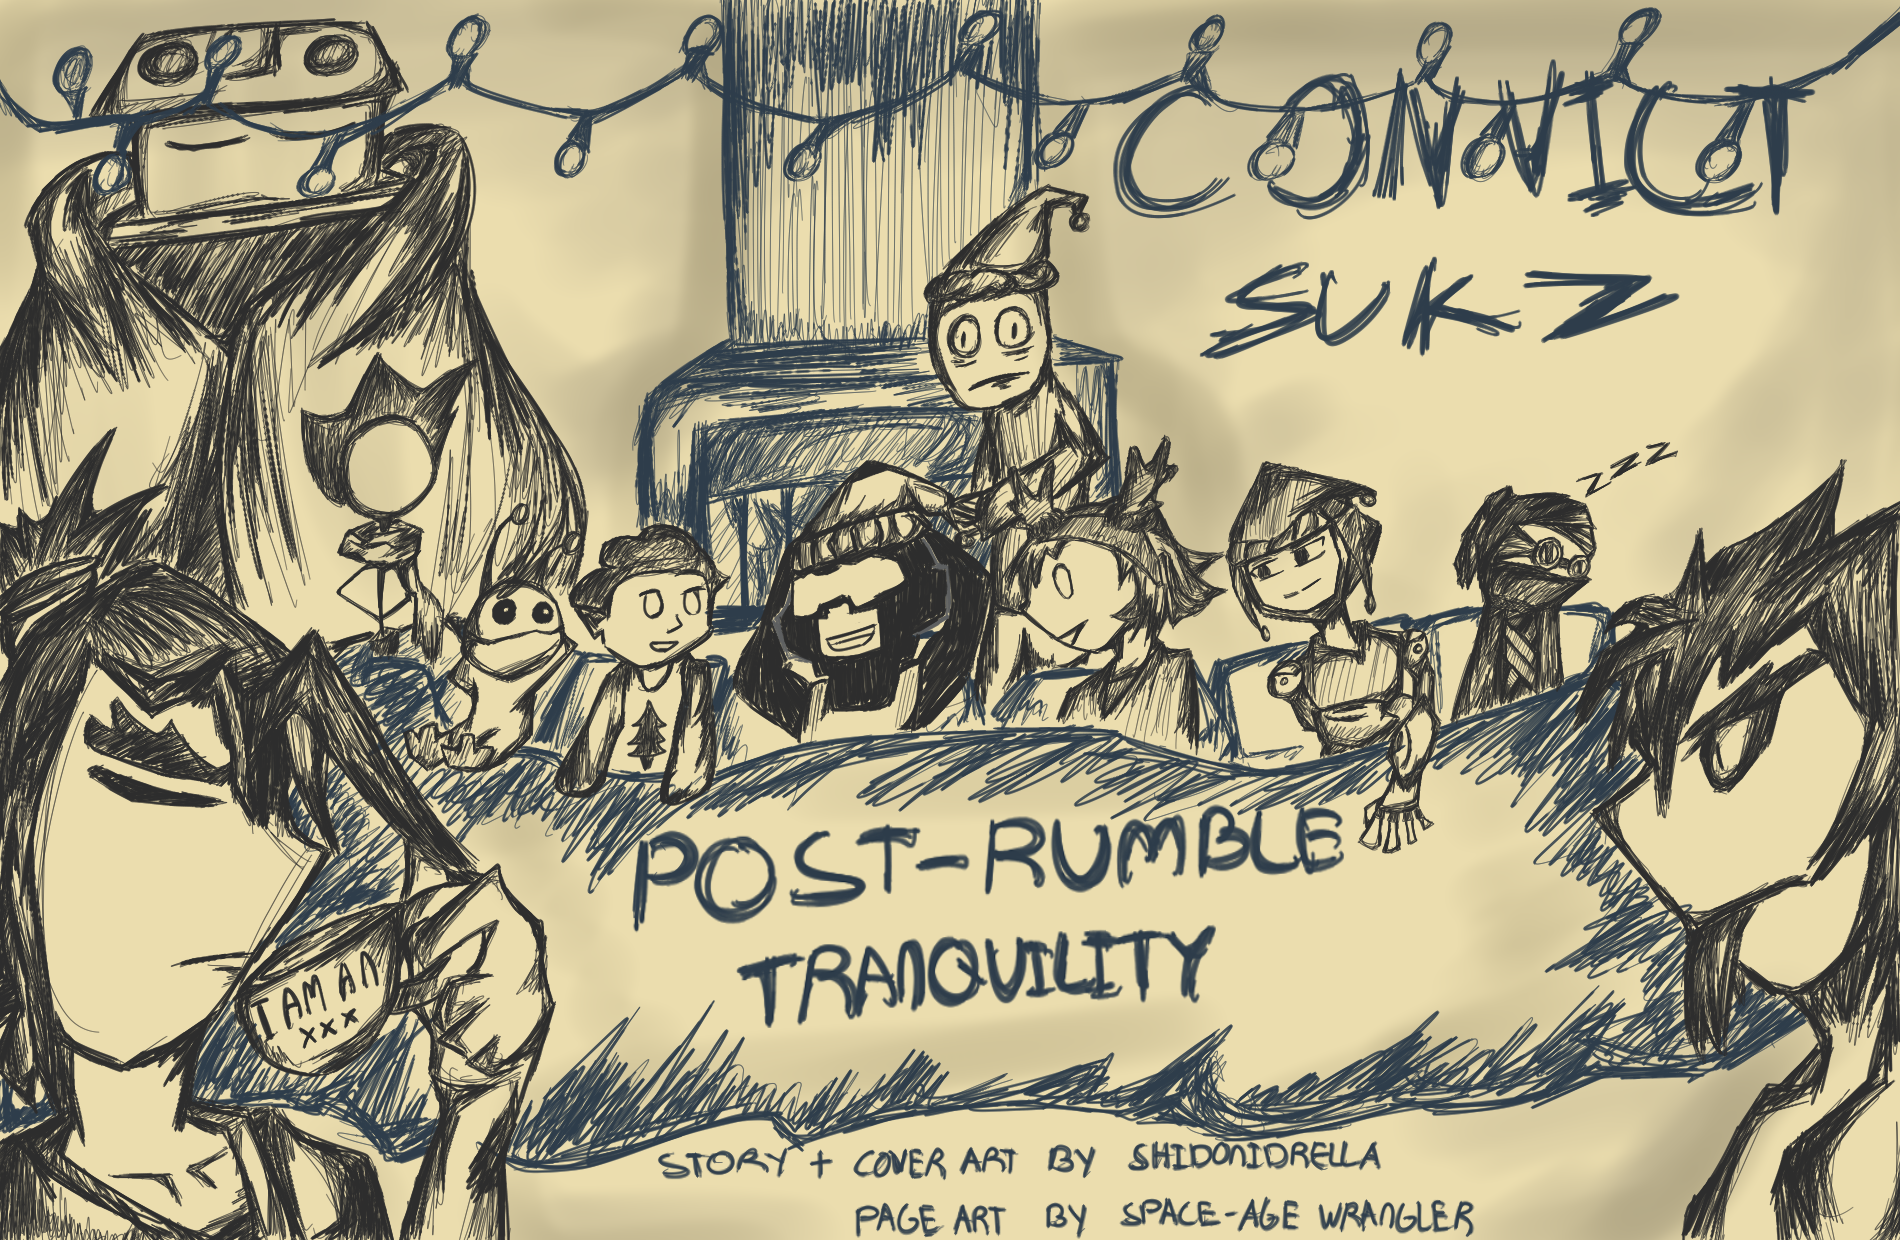 CONVICT
SUKZ
zzz
I AM AN
xxx
POST-RUMBLE
TRANQUILITY
STORY + COVER ART BY SHIDONIDRELLA
PAGE ART BY SPACE-AGE WRANGLER